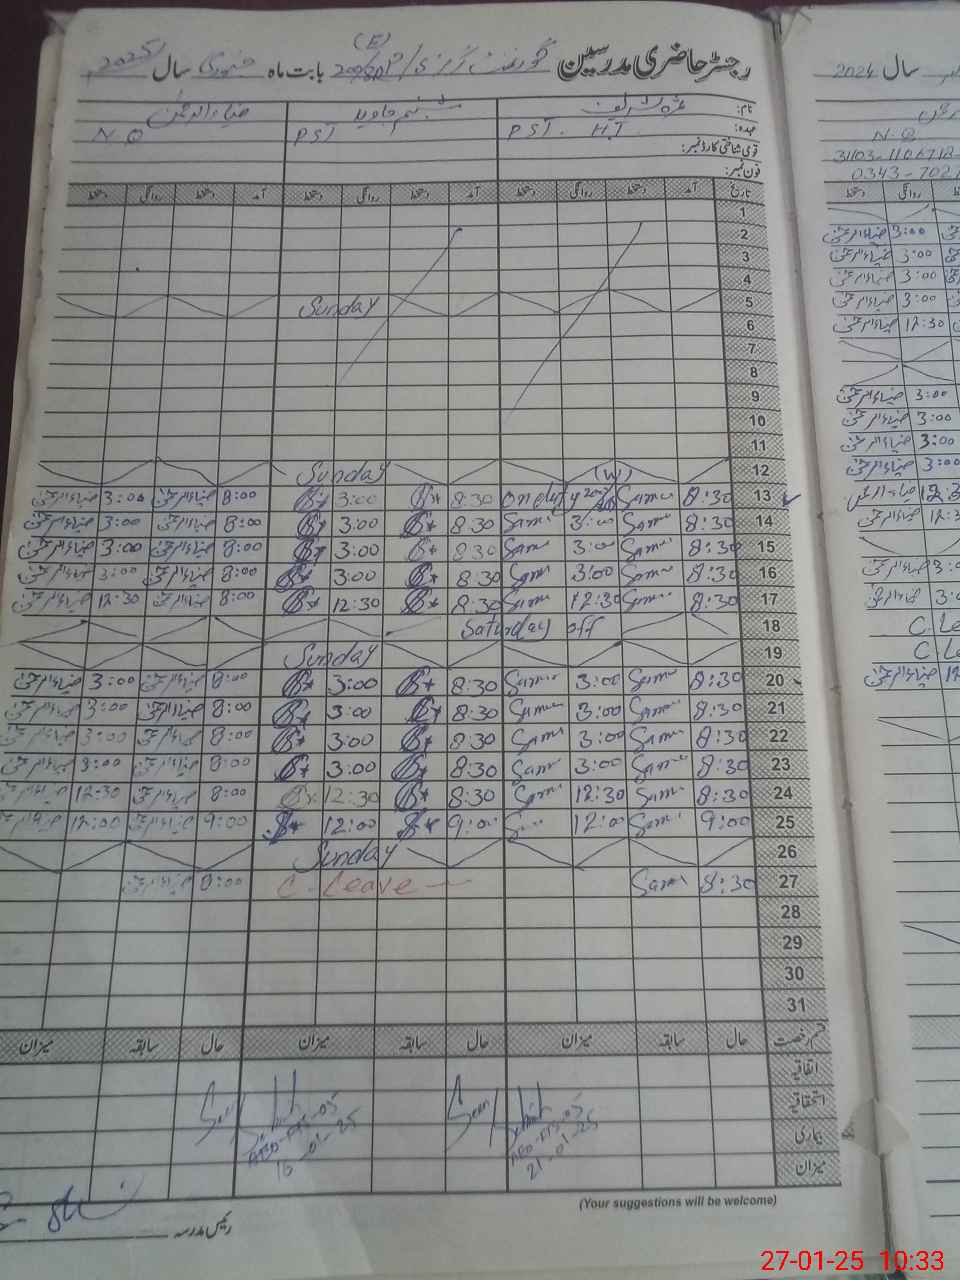 رجسٹر حاضری مدرسین گورنمنٹ بابت ماہ جنوری سال 2025
(E)
نام:
شبنم جاوید
ضیاء الرحمن
عہدہ: PST. HT
PST
N.Q
قومی شناختی کارڈ نمبر:
فون نمبر:
تاریخ آمد دستخط روانگی دستخط آمد دستخط روانگی دستخط آمد دستخط روانگی دستخط
1
2
3
4
5 Sunday
6
7
8
9
10
11
12 (W) Sunday
13 8:30 Sam on duty 8:30 3:00 8:00 ضیاء الرحمن 3:00 ضیاء الرحمن
14 8:30 Sam 3:00 Sam 8:30 3:00 8:00 ضیاء الرحمن 3:00 ضیاء الرحمن
15 8:30 Sam 3:00 Sam 8:30 3:00 8:00 ضیاء الرحمن 3:00 ضیاء الرحمن
16 8:30 Sam 3:00 Sam 8:30 3:00 8:00 ضیاء الرحمن 3:00 ضیاء الرحمن
17 8:30 Sam 12:30 Sam 8:30 12:30 8:00 ضیاء الرحمن 12:30 ضیاء الرحمن
18 Saturday off
19 Sunday
20 8:30 Sam 3:00 Sam 8:30 3:00 8:00 ضیاء الرحمن 3:00 ضیاء الرحمن
21 8:30 Sam 3:00 Sam 8:30 3:00 8:00 ضیاء الرحمن 3:00 ضیاء الرحمن
22 8:30 Sam 3:00 Sam 8:30 3:00 8:00 ضیاء الرحمن 3:00 ضیاء الرحمن
23 8:30 Sam 3:00 Sam 8:30 3:00 8:00 ضیاء الرحمن 3:00 ضیاء الرحمن
24 8:30 Sam 12:30 Sam 8:30 12:30 8:00 ضیاء الرحمن 12:30 ضیاء الرحمن
25 9:00 Sam 12:00 9:00 12:00 9:00 ضیاء الرحمن 12:00 ضیاء الرحمن
26 Sunday
27 8:30 Sam C-Leave 8:00 ضیاء الرحمن
28
29
30
31
قسم رخصت حال سابقہ میزان حال سابقہ میزان حال سابقہ میزان
اتفاقیہ
استحقاقیہ
بیماری
میزان
Seen
AEO-FTS-05
21-01-25
Seen
AEO-FTS-05
16-01-25
(Your suggestions will be welcome)
رئیس مدرسہ
سال 2024
N.Q
31103-1106712
0343-702
دستخط روانگی
ضیاء الرحمن 3:00
ضیاء الرحمن 3:00
ضیاء الرحمن 3:00
ضیاء الرحمن 3:00
ضیاء الرحمن 12:30
ضیاء الرحمن 3:00
ضیاء الرحمن 3:00
ضیاء الرحمن 3:00
ضیاء الرحمن 3:00
ضیاء الرحمن 12:3
ضیاء الرحمن 12:3
ضیاء الرحمن 3:0
ضیاء الرحمن 3:0
C.Le
C.Le
ضیاء الرحمن 12
27-01-25 10:33